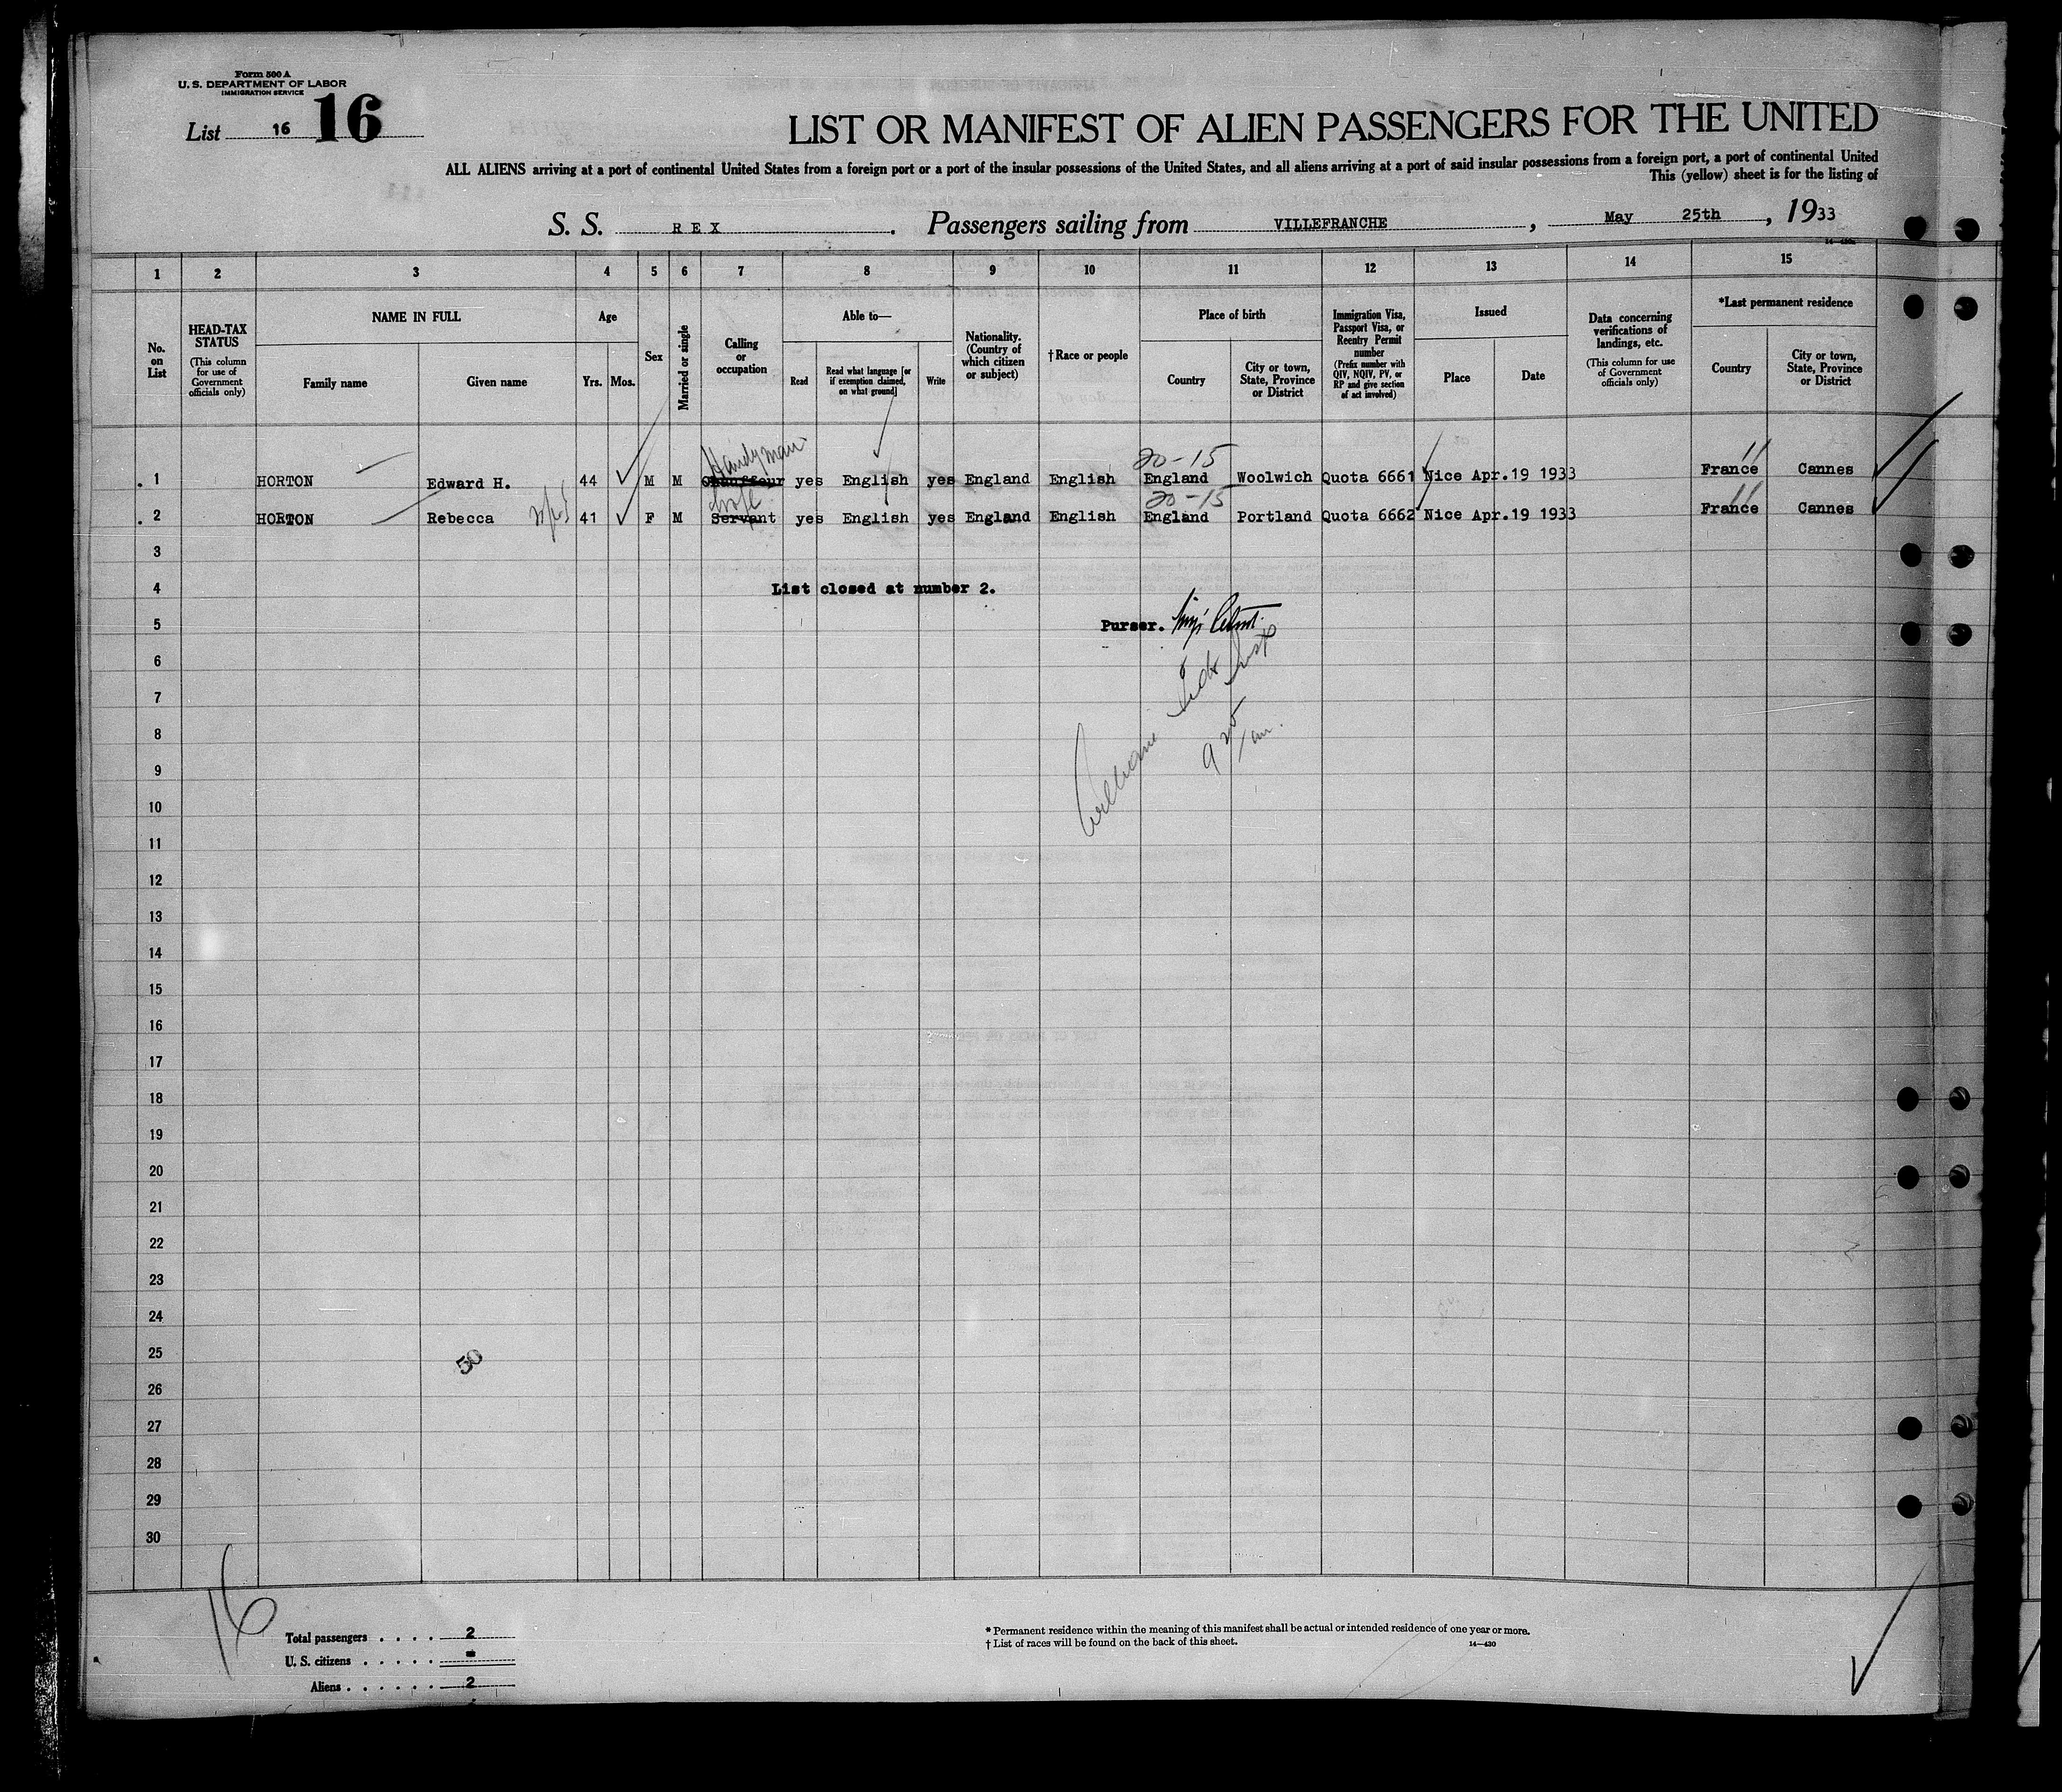 Form 500 A
U. S. DEPARTMENT OF LABOR
IMMIGRATION SERVICE
List 16 16
LIST OR MANIFEST OF ALIEN PASSENGERS FOR THE UNITED
ALL ALIENS arriving at a port of continental United States from a foreign port or a port of the insular possessions of the United States, and all aliens arriving at a port of said insular possessions from a foreign port, a port of continental United
This (yellow) sheet is for the listing of
S. S. REX. Passengers sailing from VILLEFRANCHE, May 25th, 1933
1 2 3 4 5 6 7 8 9 10 11 12 13 14 15
No. on List
HEAD-TAX STATUS
(This column for use of Government officials only)
NAME IN FULL
Family name
Given name
Age
Yrs. Mos.
Sex
Married or single
Calling or occupation
Able to—
Read
Read what language [or if exemption claimed, on what ground]
Write
Nationality. (Country of which citizen or subject)
†Race or people
Place of birth
Country
City or town, State, Province or District
Immigration Visa, Passport Visa, or Reentry Permit number
(Prefix number with QIV, NQIV, PV, or RP and give section of act involved)
Issued
Place
Date
Data concerning verifications of landings, etc.
(This column for use of Government officials only)
*Last permanent residence
Country
City or town, State, Province or District
Handyman 20-15
1 HORTON Edward H. 44 M M Chauffeur yes English yes England English England Woolwich Quota 6661 Nice Apr.19 1933 France Cannes
wife 20-15
2 HORTON Rebecca 41 F M Servant yes English yes England English England Portland Quota 6662 Nice Apr.19 1933 France Cannes
3
4 List closed at number 2.
5 Purser.
6
7
8
9
10
11
12
13
14
15
16
17
18
19
20
21
22
23
24
25
50
26
27
28
29
30
16
Total passengers . . . . 2
U. S. citizens . . . . . . -
Aliens . . . . . . . 2
* Permanent residence within the meaning of this manifest shall be actual or intended residence of one year or more.
† List of races will be found on the back of this sheet. 14—430